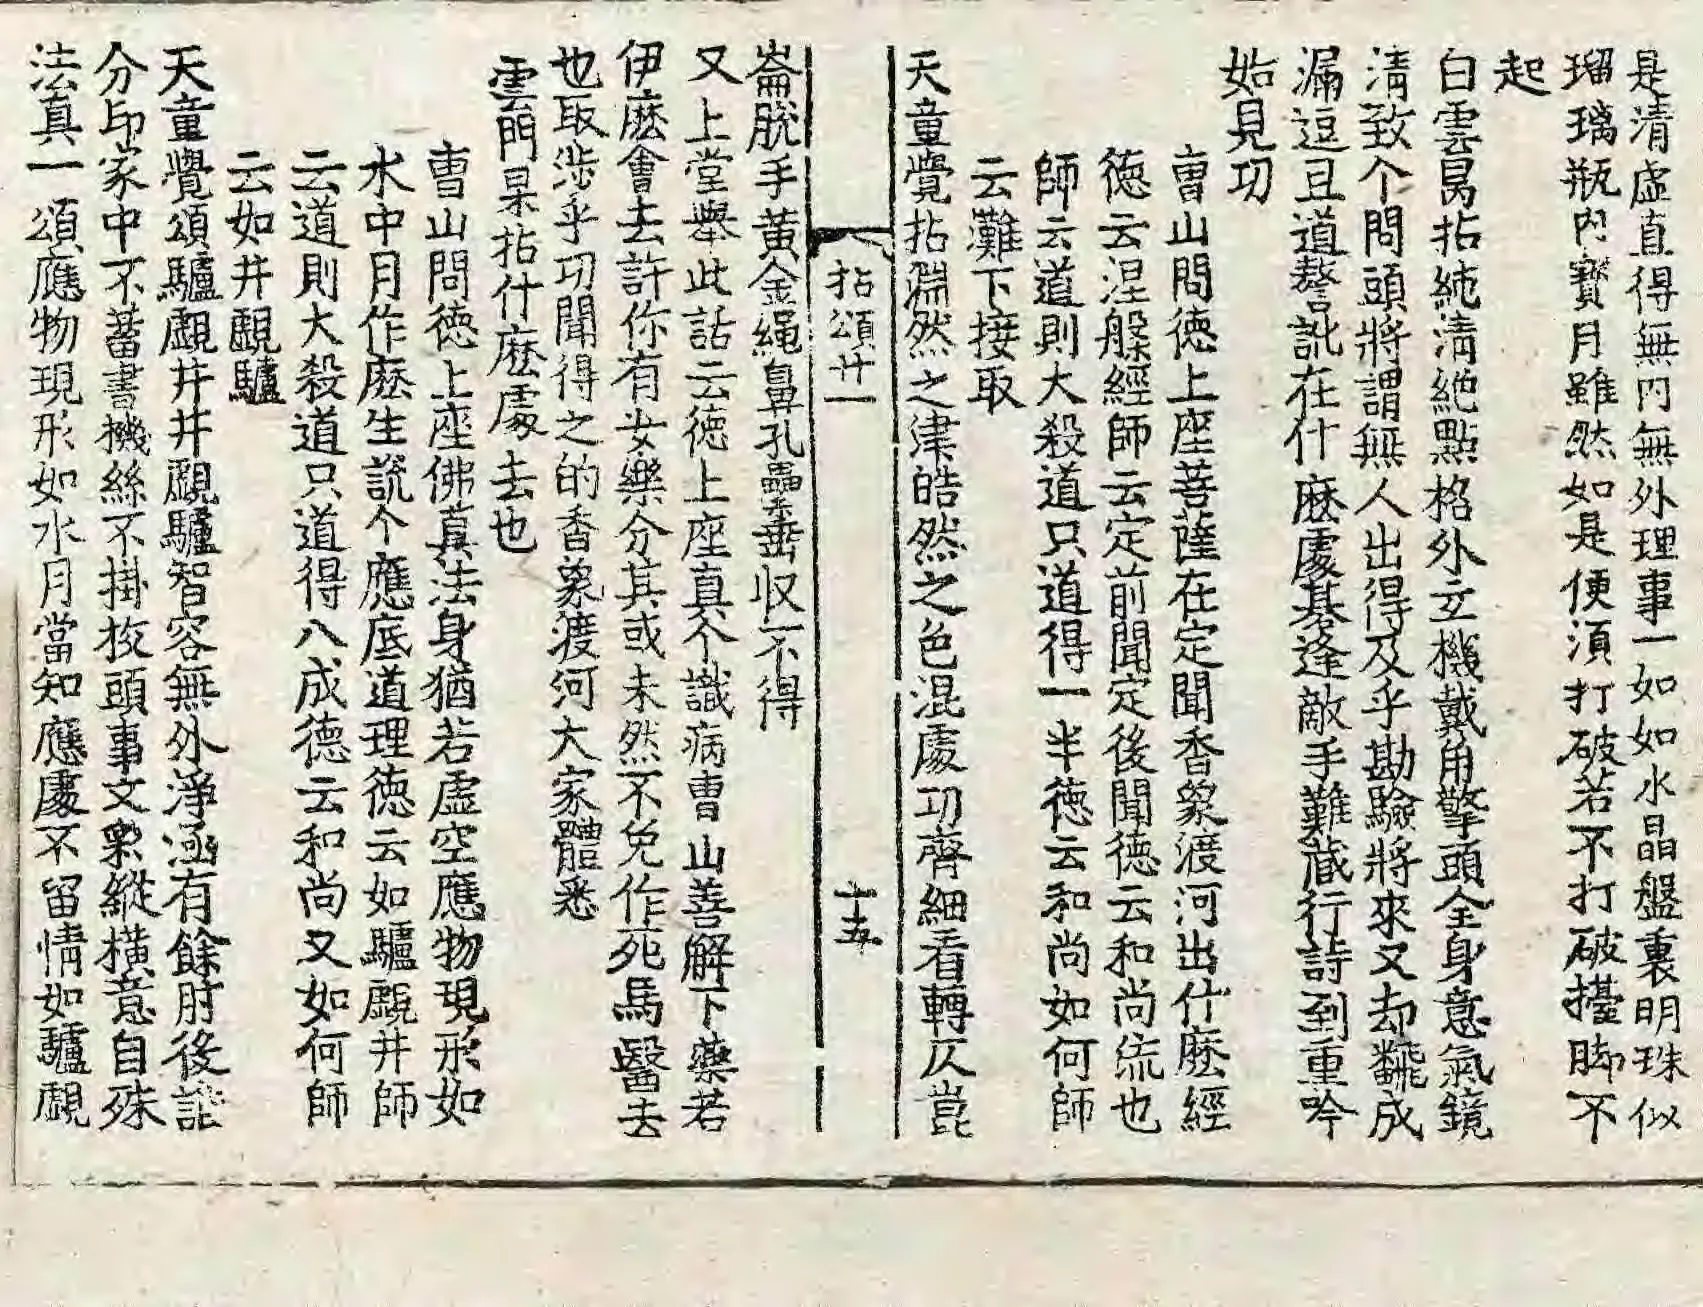 是清虛直得無內無外理事一如如水晶盤裏明珠似
瑠璃瓶內寶月雖然如是便須打破若不打破擡脚不
起
白雲昺拈純清絶點格外立機戴角擎頭全身意氣鏡
清致个問頭將謂無人出得及乎勘驗將來又却飜成
漏逗且道誵訛在什麽處碁逢敵手難藏行詩到重吟
始見功
曺山問徳上座菩薩在定聞香象渡河出什麽經
徳云涅槃經師云定前聞定後聞德云和尚流也
師云道則大殺道只道得一半徳云和尚如何師
云灘下接取
天童覺拈淵然之津皓然之色混處功齊細看轉仄崑
拈頌卄一
十五
崙脫手黃金繩鼻孔纍垂収不得
又上堂擧此話云徳上座真个識病曺山善解下藥若
伊麽會去許你有女樂分其或未然不免作死馬醫去
也取涉乎功聞得之的香象渡河大家體悉
雲門杲拈什麽處去也
曺山問徳上座佛真法身猶若虛空應物現形如
水中月作麽生說个應底道理徳云如驢覷井師
云道則大殺道只道得八成德云和尚又如何師
云如井覷驢
天童覺頌驢覷井井覷驢智容無外淨涵有餘肘後誰
分印家中不蓄書機絲不掛梭頭事文彩縱橫意自殊
法真一頌應物現形如水月當知應處不留情如驢覷